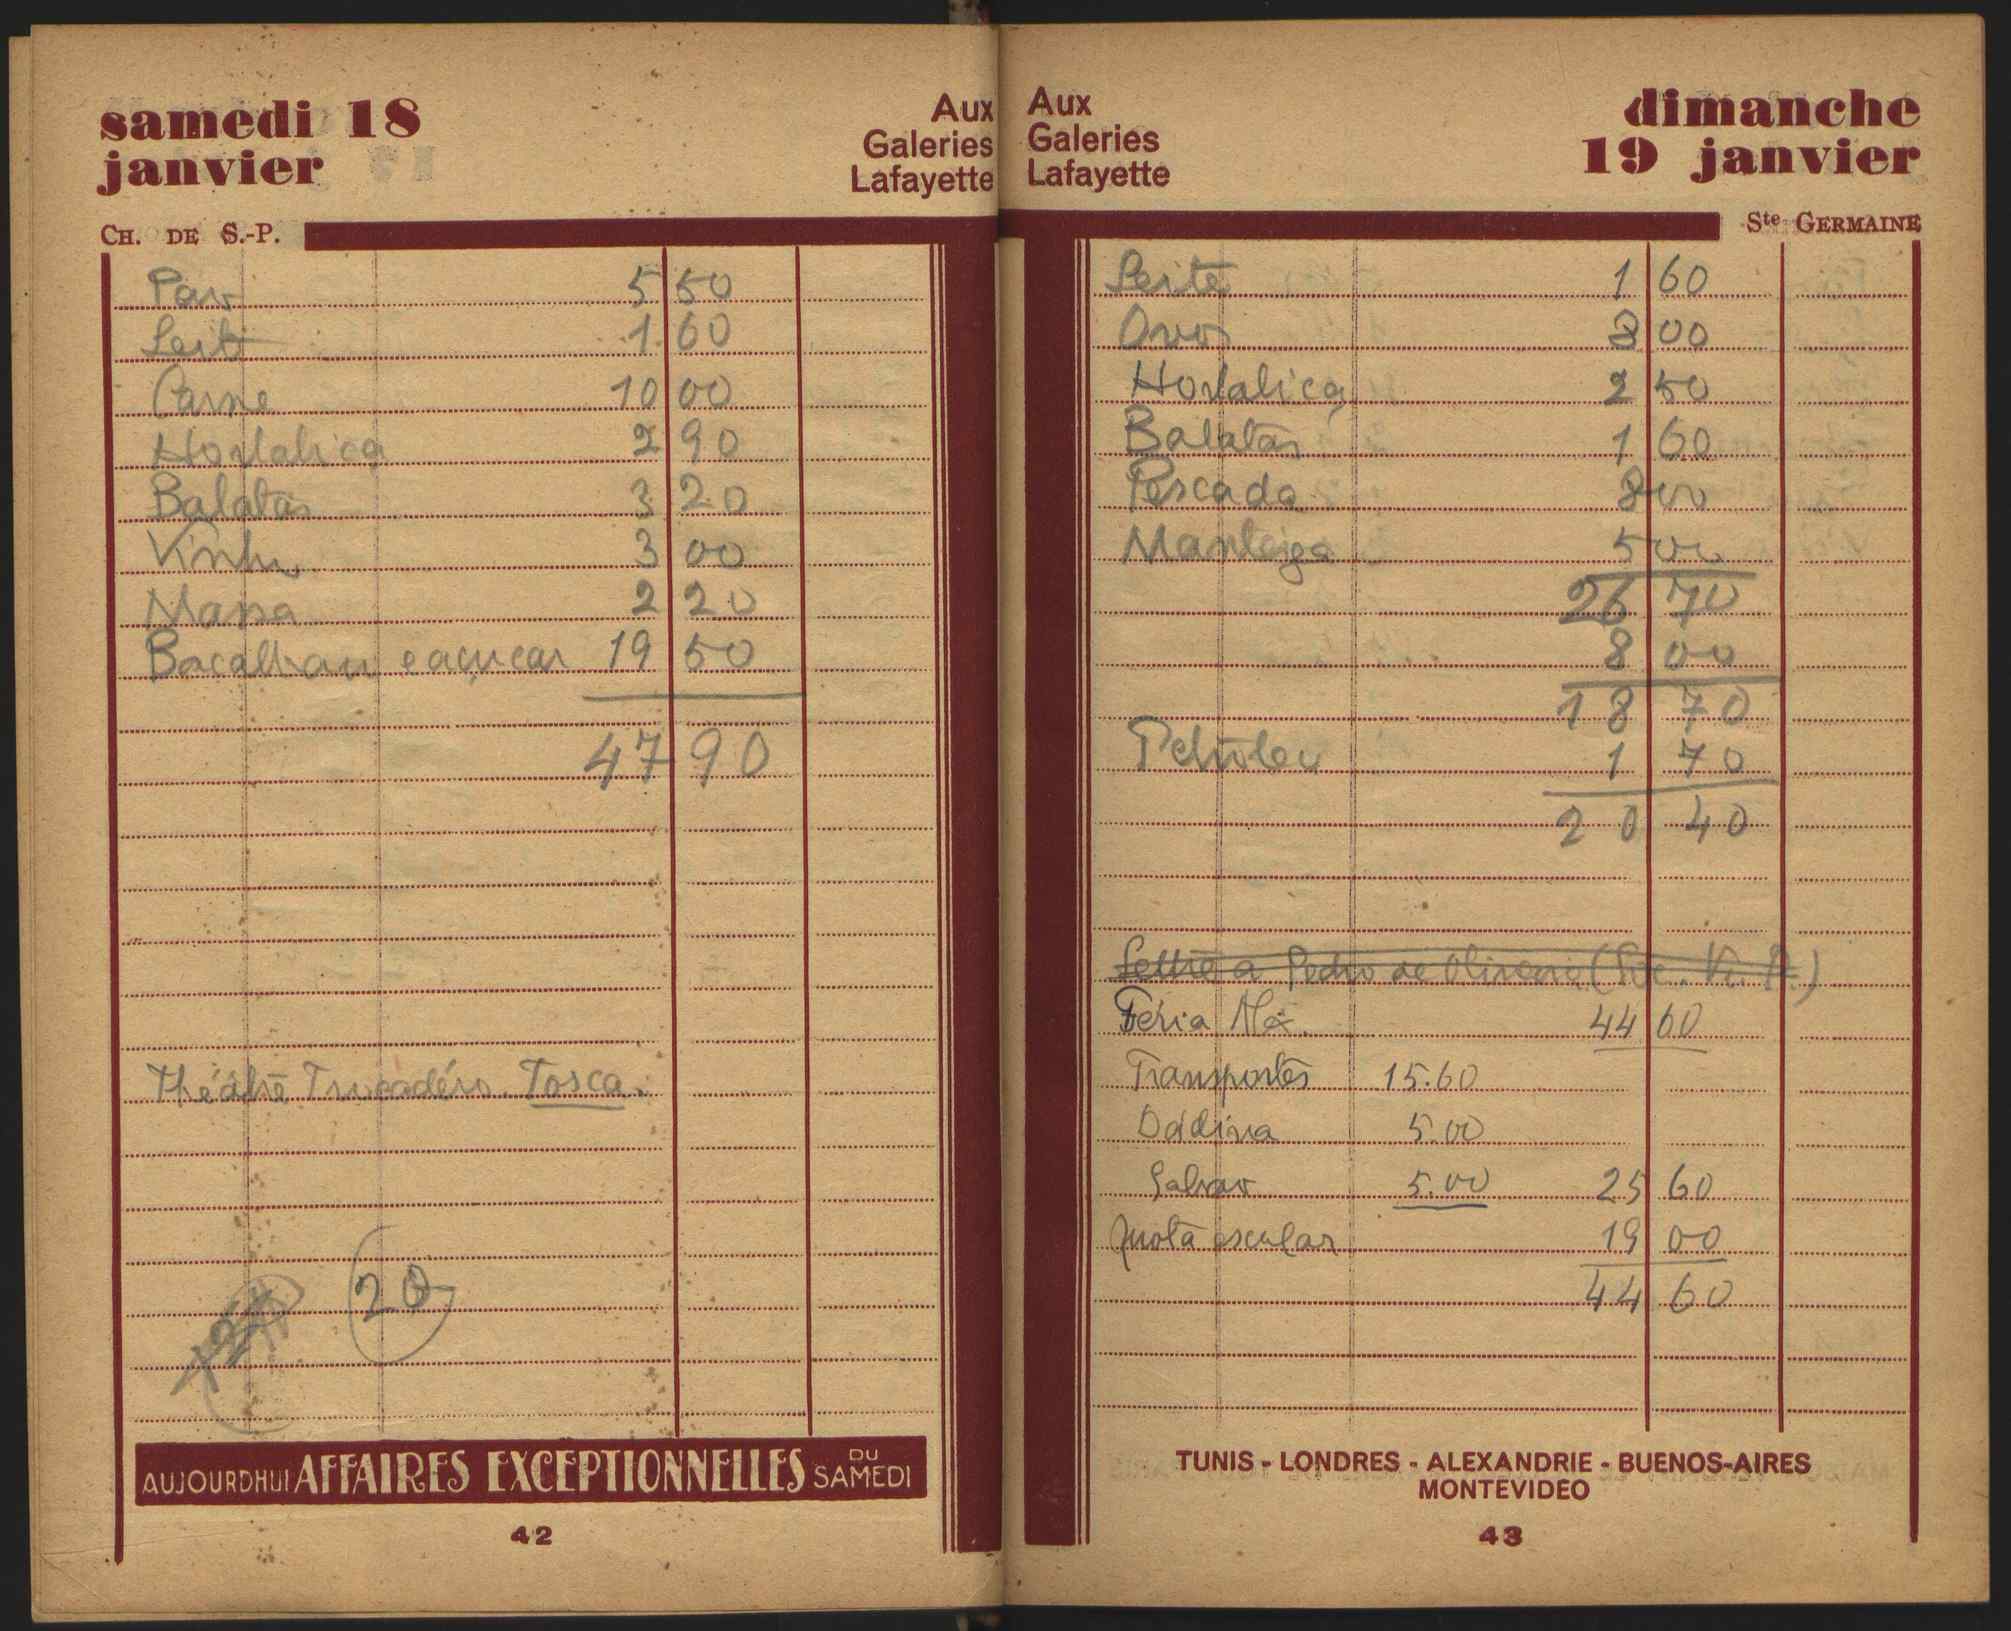 samedi 18
janvier
Aux
Galeries
Lafayette
CH. DE S.-P.
Pão 5 50
Leite 1 60
Carne 10 00
Hortaliça 2 90
Batatas 3 20
Vinho 3 00
Massa 2 20
Bacalhau e açucar 19 50
47 90
Théâtre Trocadéro. Tosca.
20
AUJOURDHUI AFFAIRES EXCEPTIONNELLES DU SAMEDI
42
Aux
Galeries
Lafayette
dimanche
19 janvier
Ste GERMAINE
Leite 1 60
Ovos 8 00
Hortaliça 2 50
Batatas 1 60
Pescada 8 00
Manteiga 5 00
26 70
8 00
18 70
Petroleo 1 70
20 40
Lettre a Pedro de Oliveira
Féria 44 60
Transportes 15.60
Oddina 5.00
Galvão 5.00 25 60
Quota escolar 19 00
44 60
TUNIS - LONDRES - ALEXANDRIE - BUENOS-AIRES
MONTEVIDEO
43